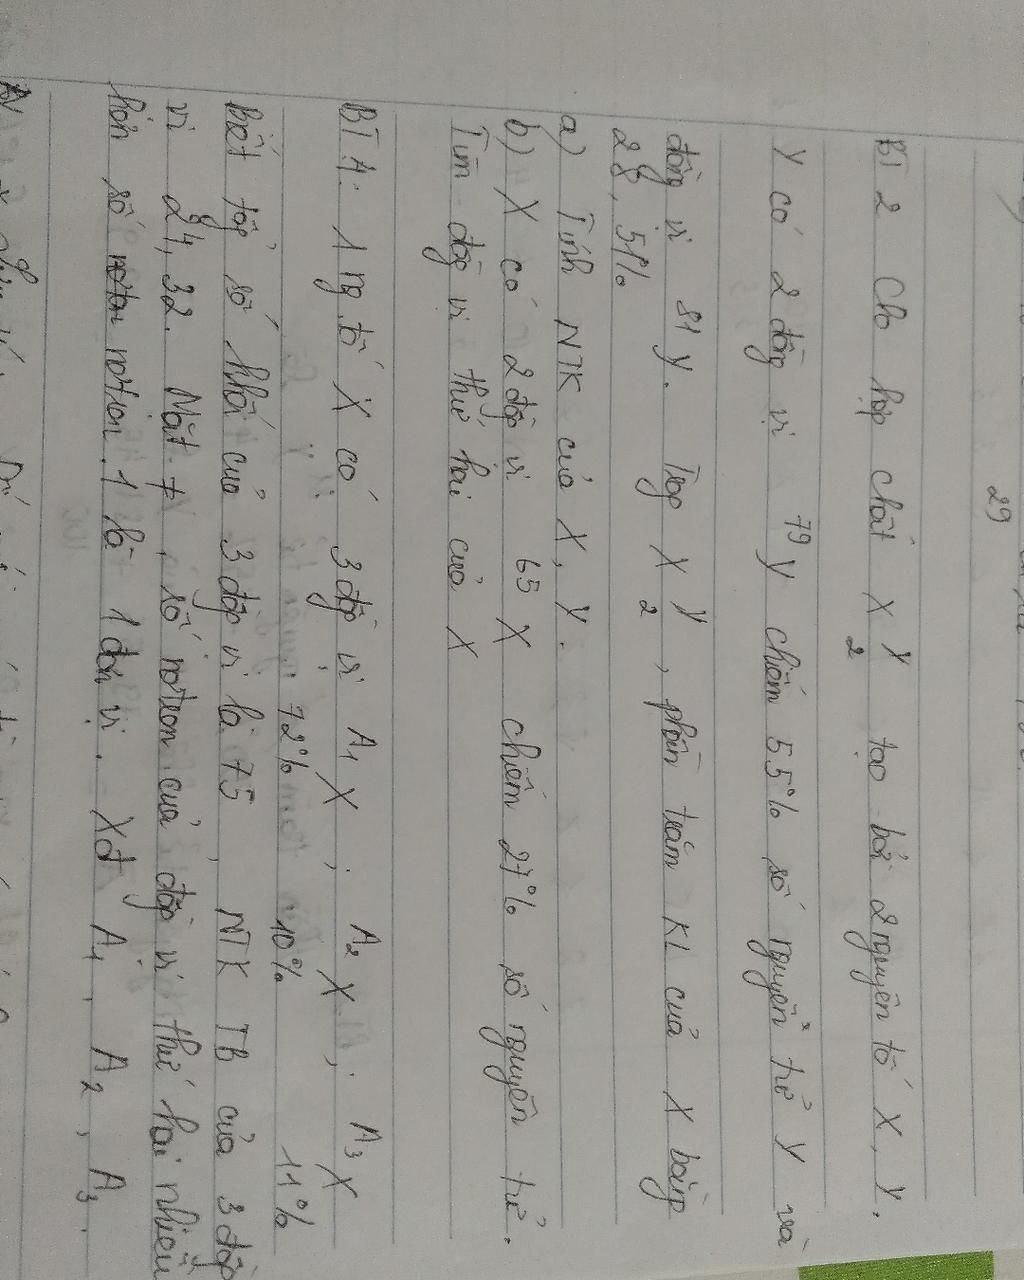 29
BT 2 Cho hợp chất X Y2 tạo bởi 2 nguyên tố X, Y.
Y có 2 đồng vị 79Y chiếm 55% số nguyên tử Y và
đồng vị 81Y. Trog X Y2, phần trăm KL của X bằng
28,51%
a) Tính NTK của X, Y.
b) X có 2 đồg vị 65X chiếm 27% số nguyên tử.
Tìm đồg vị thứ hai của X
BT 4: 1 ng.tố X có 3 đồg vị A1X, A2X, A3X
72% 10% 11%
biết tổg số khối của 3 đồg vị là 75, NTK TB của 3 đồg
vị 24,32. Mặt ≠, số nơtron của đồg vị thứ hai nhiều
hơn số nơtron 1 là 1 đơn vị. Xđ A1, A2, A3.